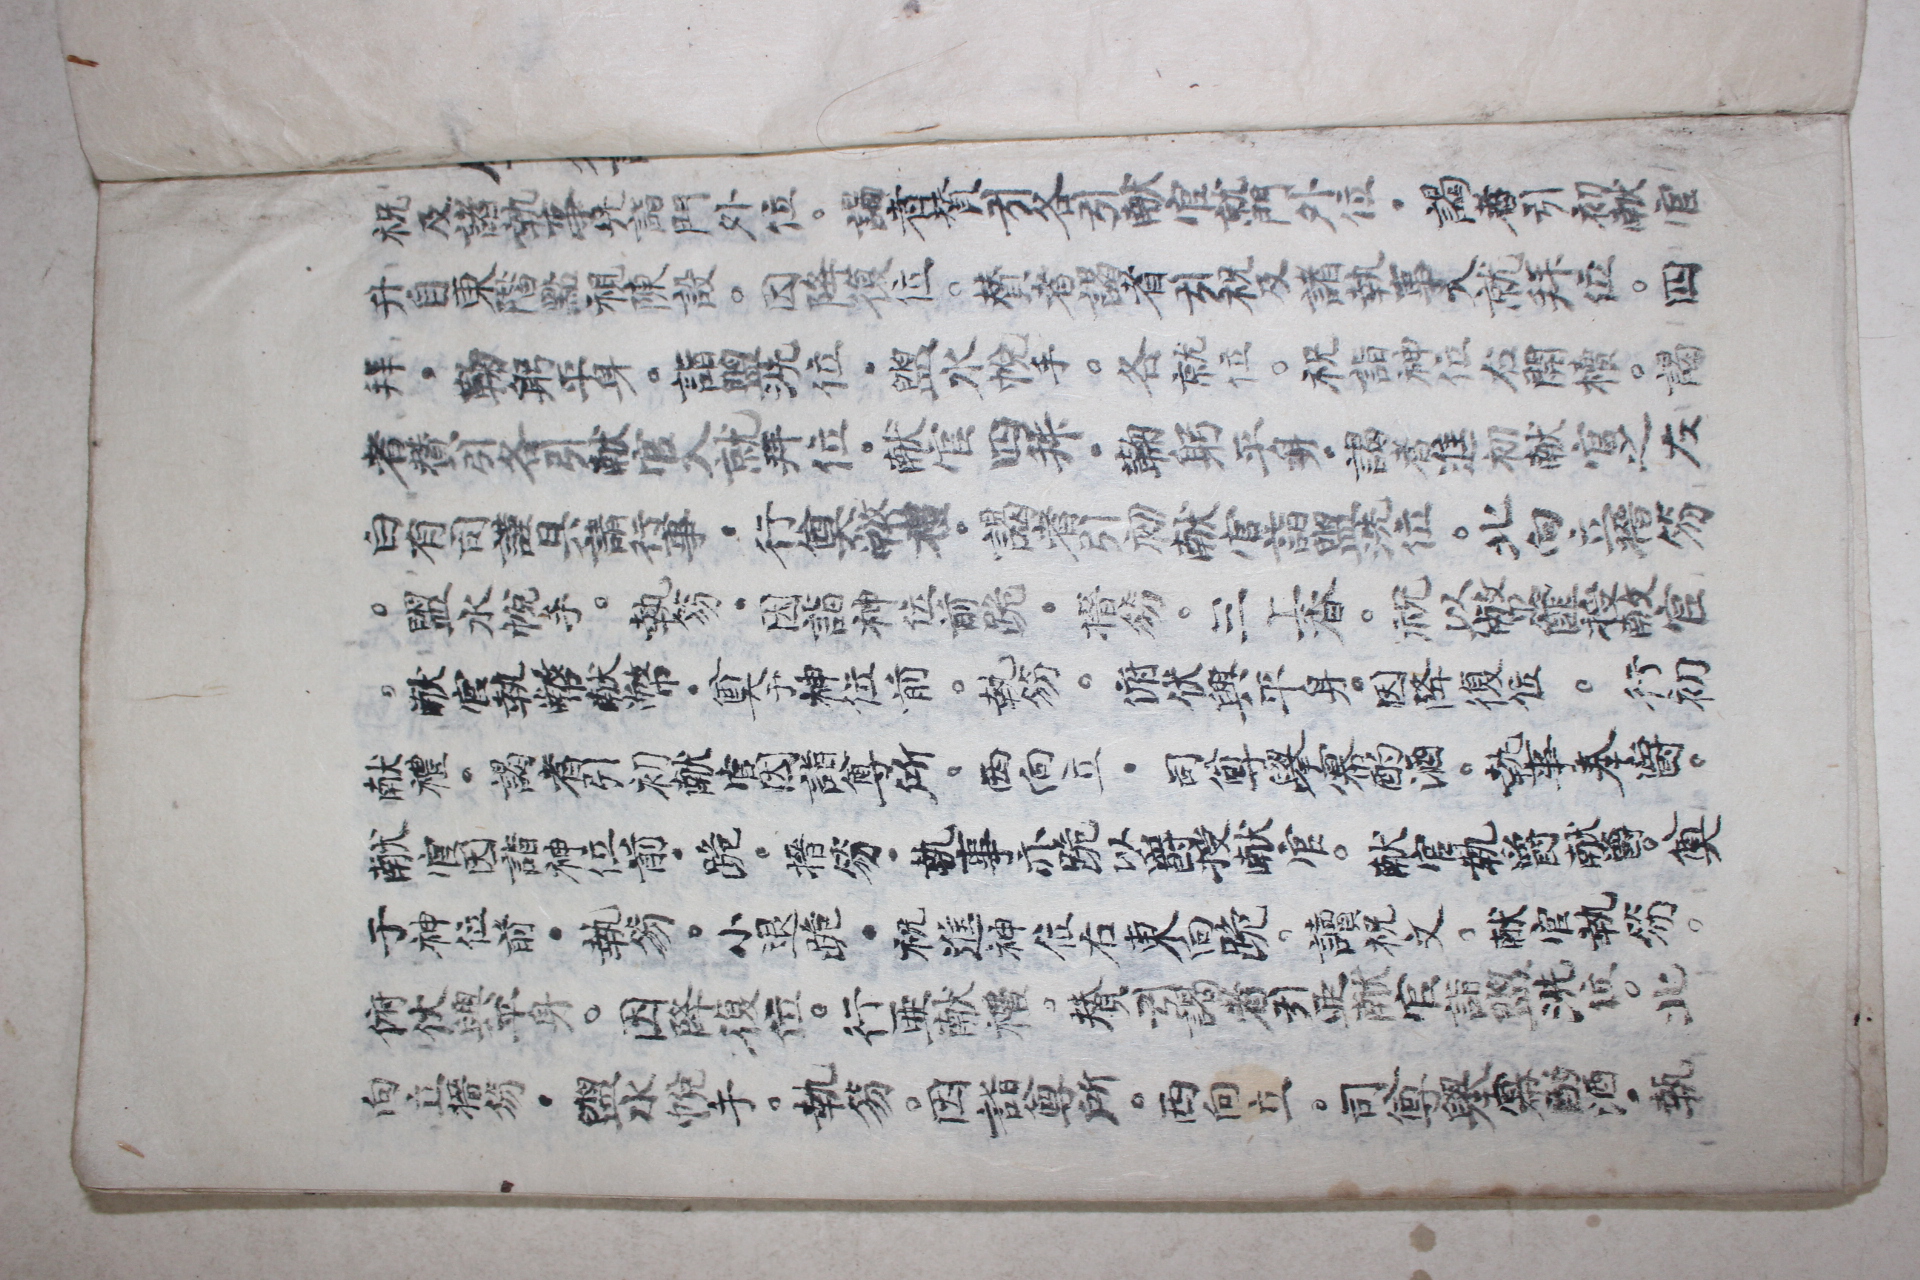 祝及諸執事先詣門外位。謁者贊引各引献官就門外位。謁者引初献官
升自東階監視陳設。因降復位。贊者謁者引祝及諸執事入就拜位。四
拜。鞠躬平身。詣盥洗位。盥水帨手。各就位。祝詣神位右開櫝。謁
者贊引各引献官入就拜位。献官四拜。鞠躬平身。謁者進初献官之左
白有司謹具請行事。行奠幣禮。謁者引初献官詣盥洗位。北向立搢笏
。盥水帨手。執笏。因詣神位前跪。搢笏。三上香。祝以幣篚授献官
。献官執幣献幣。奠于神位前。執笏。俯伏興平身。因降復位。行初
献禮。謁者引初献官因詣尊所。西向立。司尊擧冪酌酒。執事奉爵。
献官因詣神位前。跪。搢笏。執事亦跪以爵授献官。献官執爵献爵。奠
于神位前。執笏。小退跪。祝進神位右東向跪。讀祝文。献官執笏。
俯伏興平身。因降復位。行亜献禮。贊引謁者引亜献官詣盥洗位。北
向立搢笏。盥水帨手。執笏。因詣尊所。西向立。司尊擧冪酌酒。執